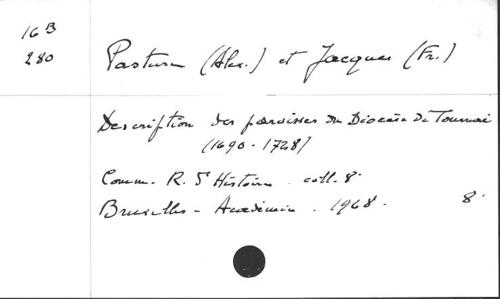 16 B
280
Pasture (Alex.) et Jacques (Fr.)
Description des paroisses du Diocèse de Tournai
(1690-1728)
Comm. R. d'Histoire. coll. 8°
Bruxelles - Académie. 1968. 8°